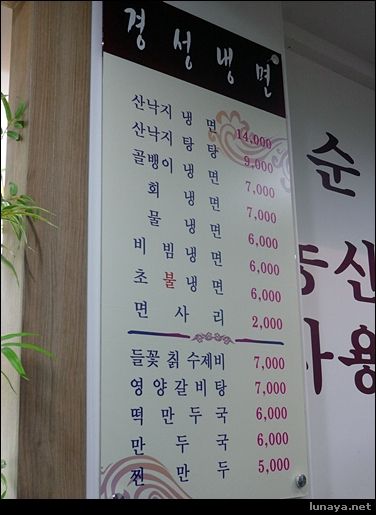 경성냉면
산낙지 냉면 14,000
산낙지 탕탕 9,000
골뱅이 냉면 7,000
회 냉면 7,000
물 냉면 6,000
비빔냉면 6,000
초불냉면 6,000
면사리 2,000
들꽃 칡 수제비 7,000
영양갈비탕 7,000
떡만두국 6,000
만두국 6,000
찐만두 5,000
순
산
용
lunaya.net